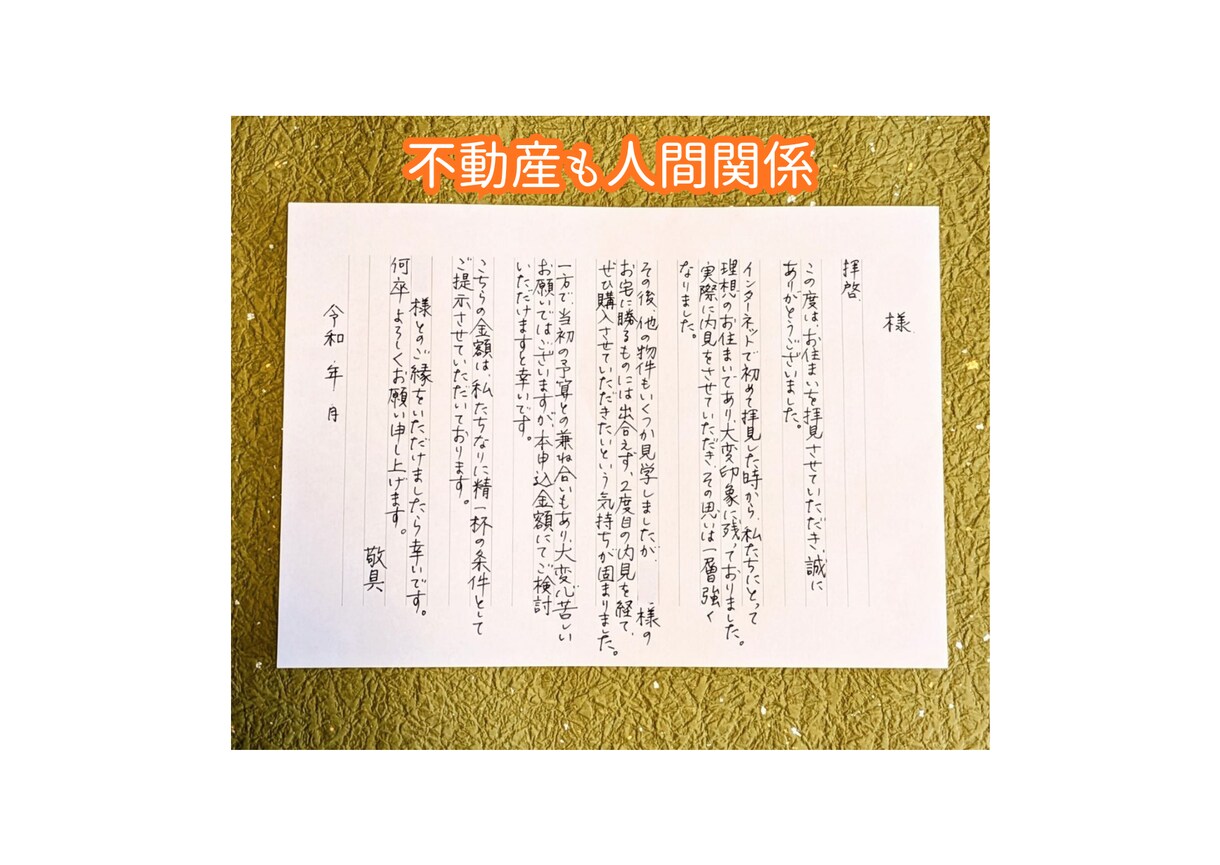 不動産も人間関係
様
拝啓
この度は、お住まいを拝見させていただき、誠に
ありがとうございました。
インターネットで初めて拝見した時から、私たちにとって
理想のお住まいであり、大変印象に残っておりました。
実際に内見をさせていただき、その思いは一層強く
なりました。
その後、他の物件もいくつか見学しましたが、 様の
お宅に勝るものには出合えず、2度目の内見を経て、
ぜひ購入させていただきたいという気持ちが固まりました。
一方で、当初の予算との兼ね合いもあり、大変心苦しい
お願いではございますが、本申込金額にてご検討
いただけますと幸いです。
こちらの金額は、私たちなりに精一杯の条件として
ご提示させていただいております。
様とのご縁をいただけましたら幸いです。
何卒よろしくお願い申し上げます。
敬具
令和 年 月